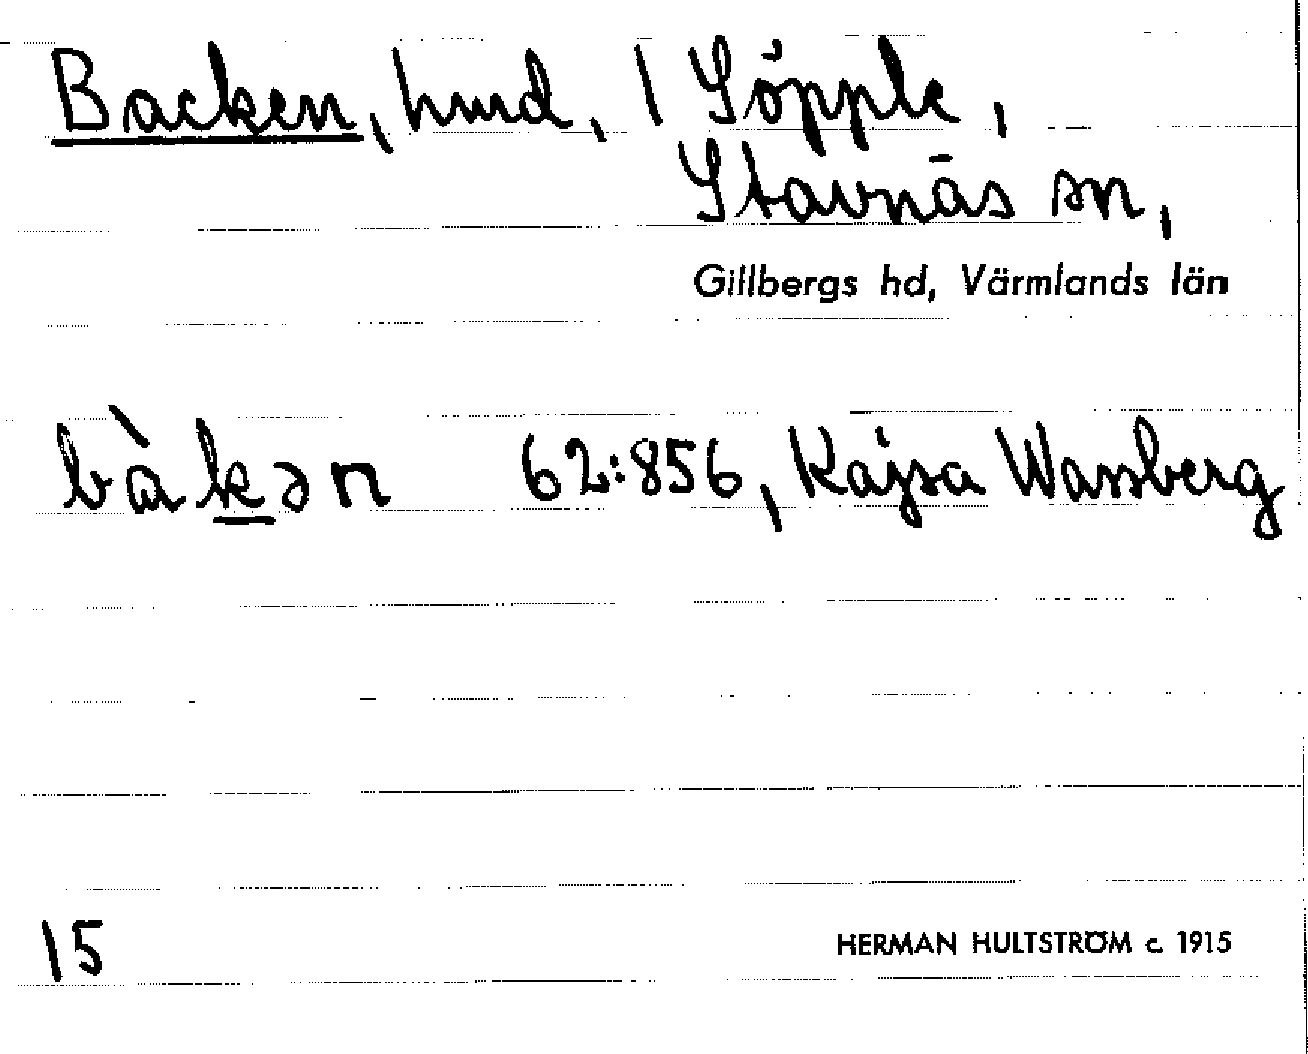 Backen, hmd, 1 Söpple,
Stavnäs sn,
Gillbergs hd, Värmlands län
bàkən 62:856, Kajsa Wassberg
15
HERMAN HULTSTRÖM c. 1915